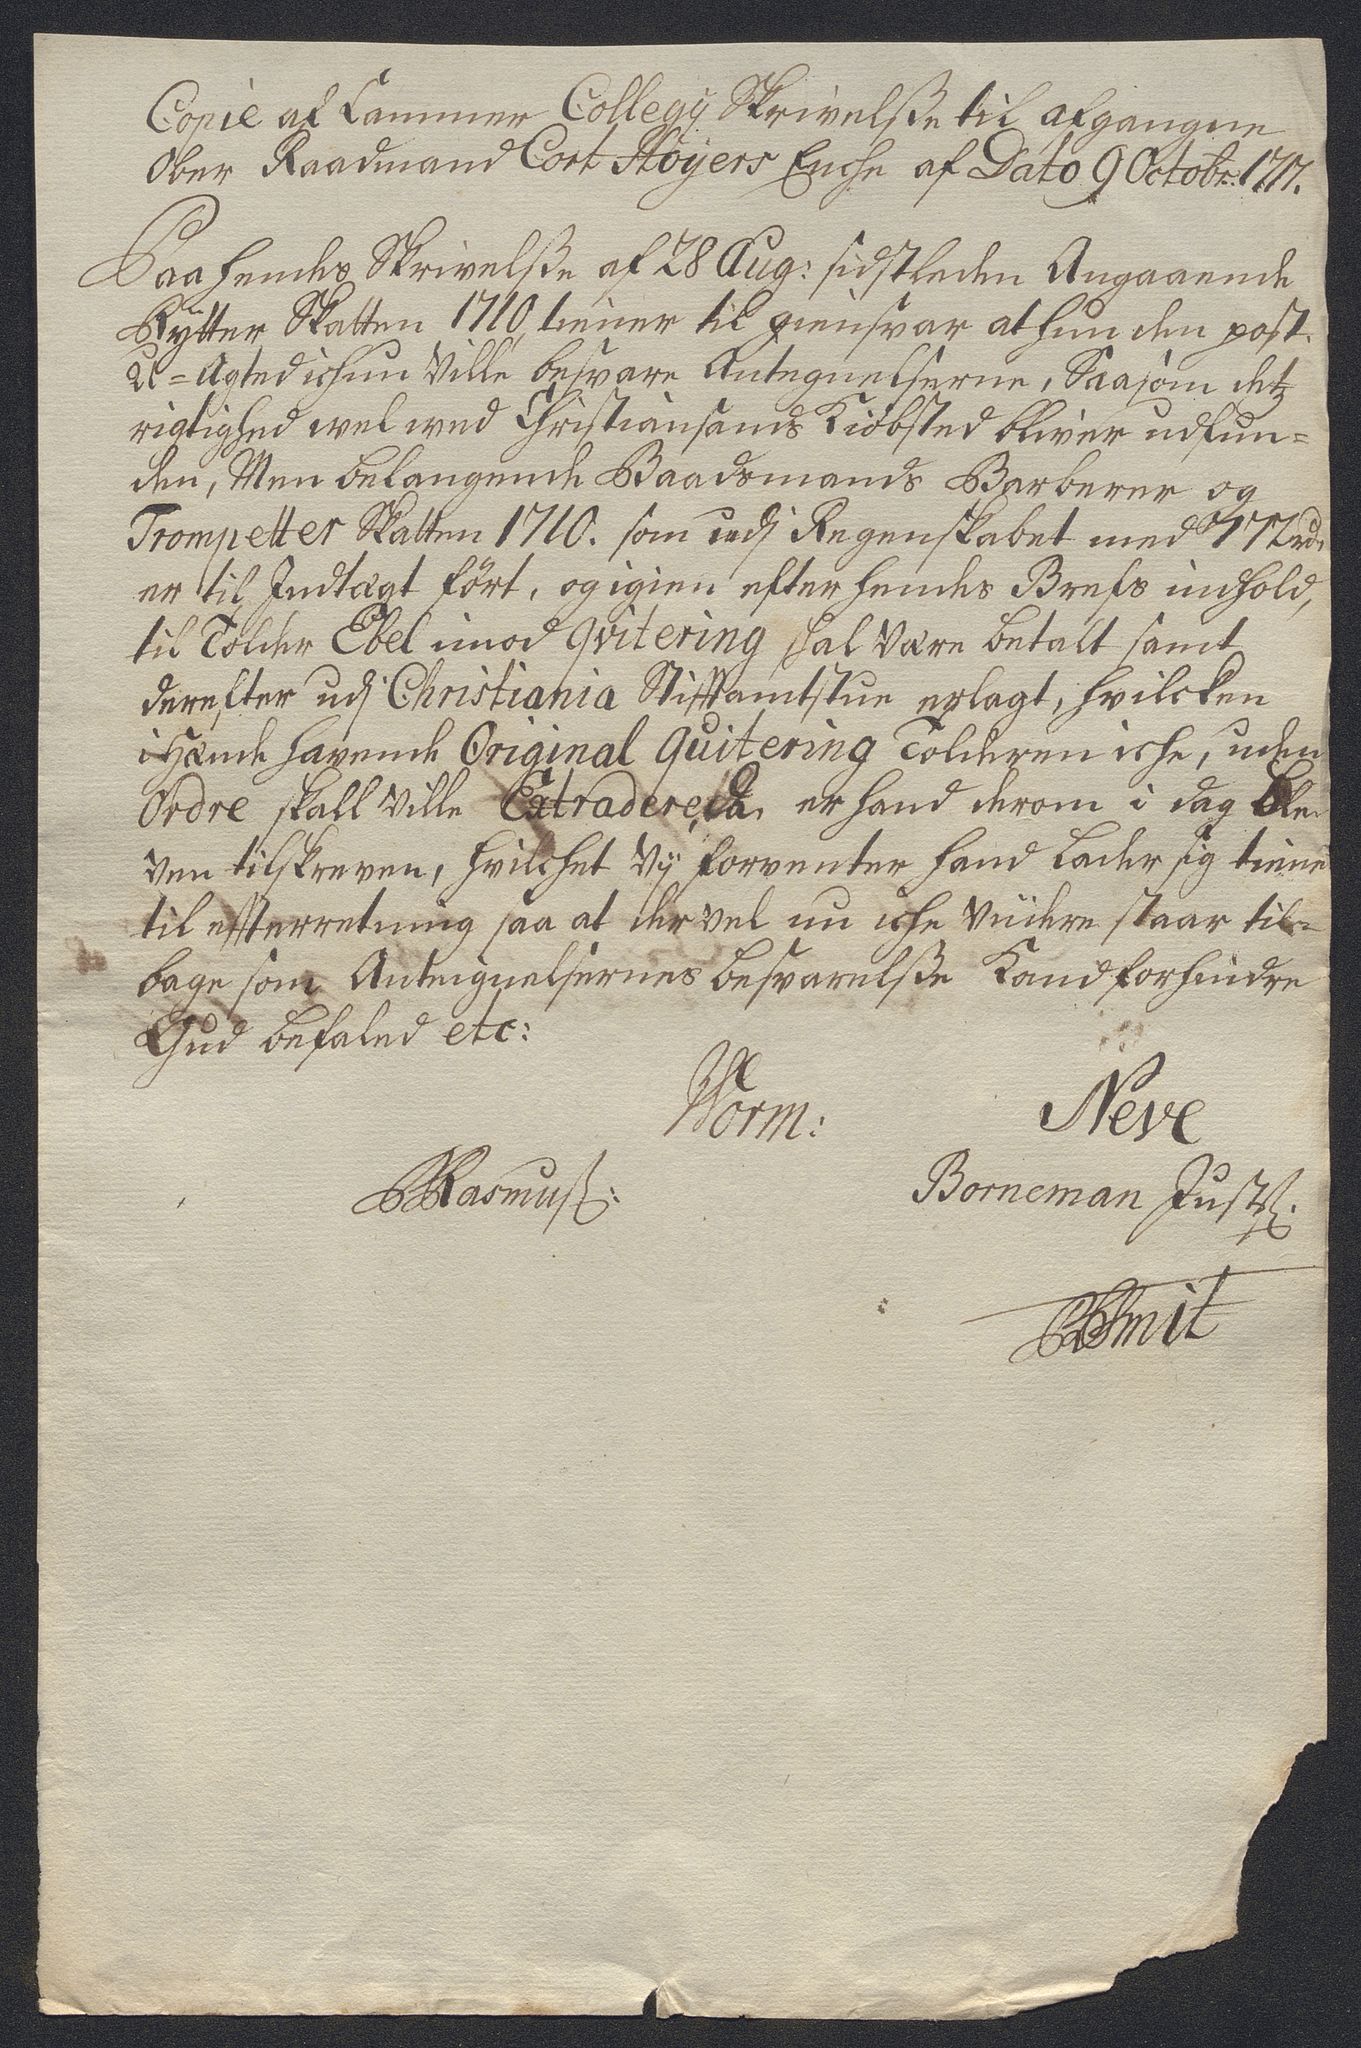 Copie af Cammer Collegij Skrivelsse til afgangne
Ober Raadmand Cort Høyers Enche af Dato 9 Octobr: 1717.
Paa hendes Skrivelsse af 28 Aug: sidstleden Angaaende
Rytter Skatten 1710, tiener til giensvar at hun den post.
U-Agted ichun Ville besvare Antegnelserne, Saasom detz
rigtighed vel ved Christiansands Kiøbsted bliver udfun=
den, Men belangende Baadsmands Barberer og
Trompetter Skatten 1710. som udj Regenskabet med 772 rd.
er til Indtægt ført, og igien efter hendes Brefs indhold,
til Tolder Ebel imod qvitering skal Være betalt samt
derefter udj Christiania Stifftamtstue erlagt, hvilcken
i Hænde havende Original Quitering Tolderen iche, uden
Ordre skall Ville Extradere, da er hand derom i dag ble-
ven tilskreven, hvilchet Vij forventer hand Lader sig tiene
til effterretning saa at der vel nu iche Viidere staar til-
bage som Anteignelsernes besvarelsse Kand forhindre
Gud befaled etc:
Worm: Neve
Rasmuss: Borneman Justss:
Smit